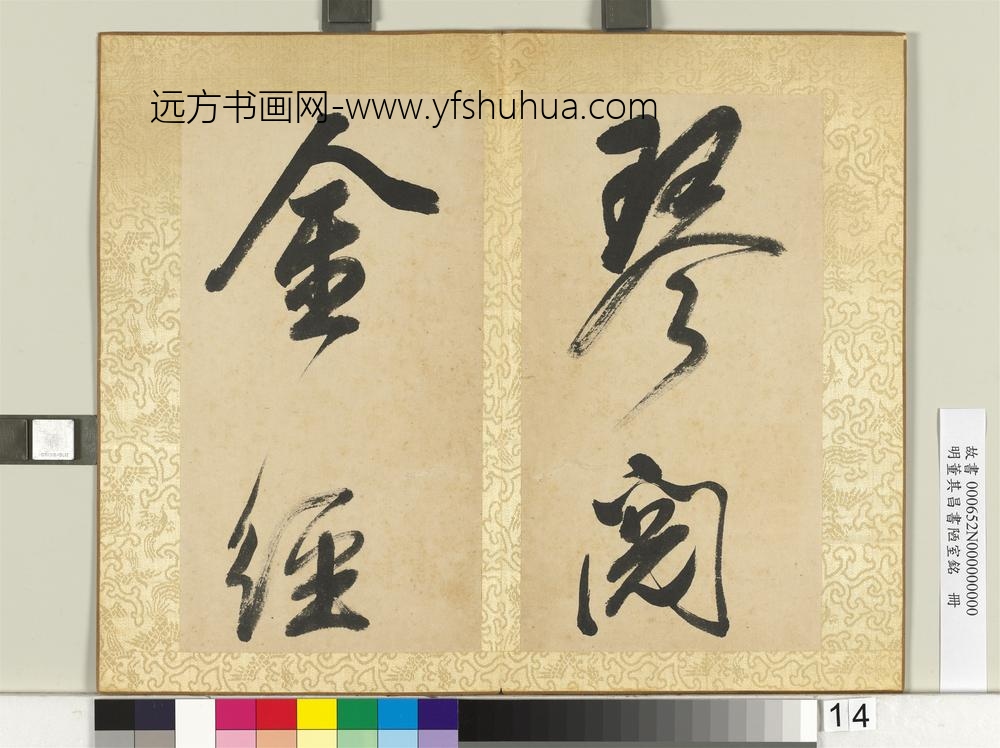 远方书画网-www.yfshuhua.com
琴閱
金經
故書 000652N000000000
明董其昌書陋室銘 冊
14